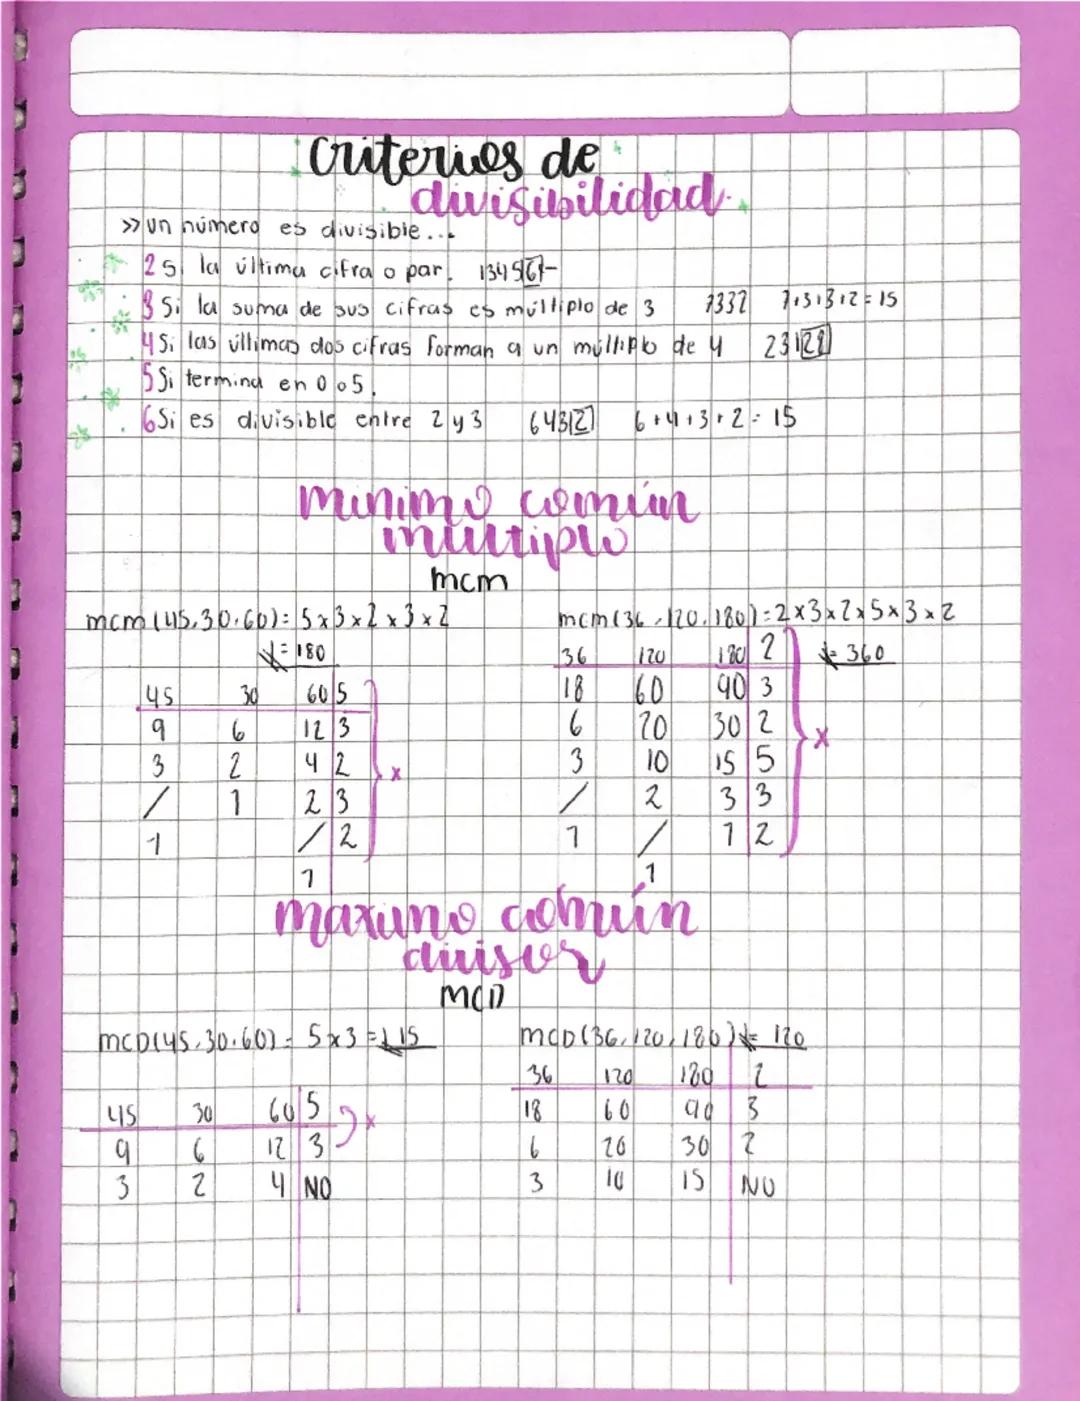 Criterios de
divisibilidad.
>> un número es divisible...
2 Si la última cifra o par. 1345[6]-
3 Si la suma de sus cifras es múltiplo de 3 7332 7+3+3+2=15
4 Si las últimas dos cifras forman a un múltiplo de 4 231[28]
5 Si termina en 0 o 5.
6 Si es divisible entre 2 y 3 6431[2] 6+4+3+2=15
minimo común
multiplo
mcm
mcm (45,30,60)= 5x3x2x3x2 mcm(36,120,180)=2x3x2x5x3x2
= 180 36 120 180 2 = 360
45 30 60 5 18 60 90 3
9 6 12 3 6 20 30 2 x
3 2 4 2 x 3 10 15 5
/ 1 2 3 / 2 3 3
1 / 2 1 / 1 2
1 1
maximo común
divisor
MCD
MCD(45,30,60)= 5x3= 15 MCD(36,120,180)= 120
36 120 180 2
45 30 60 5 x 18 60 90 3
9 6 12 3 6 20 30 2
3 2 4 NO 3 10 15 NO